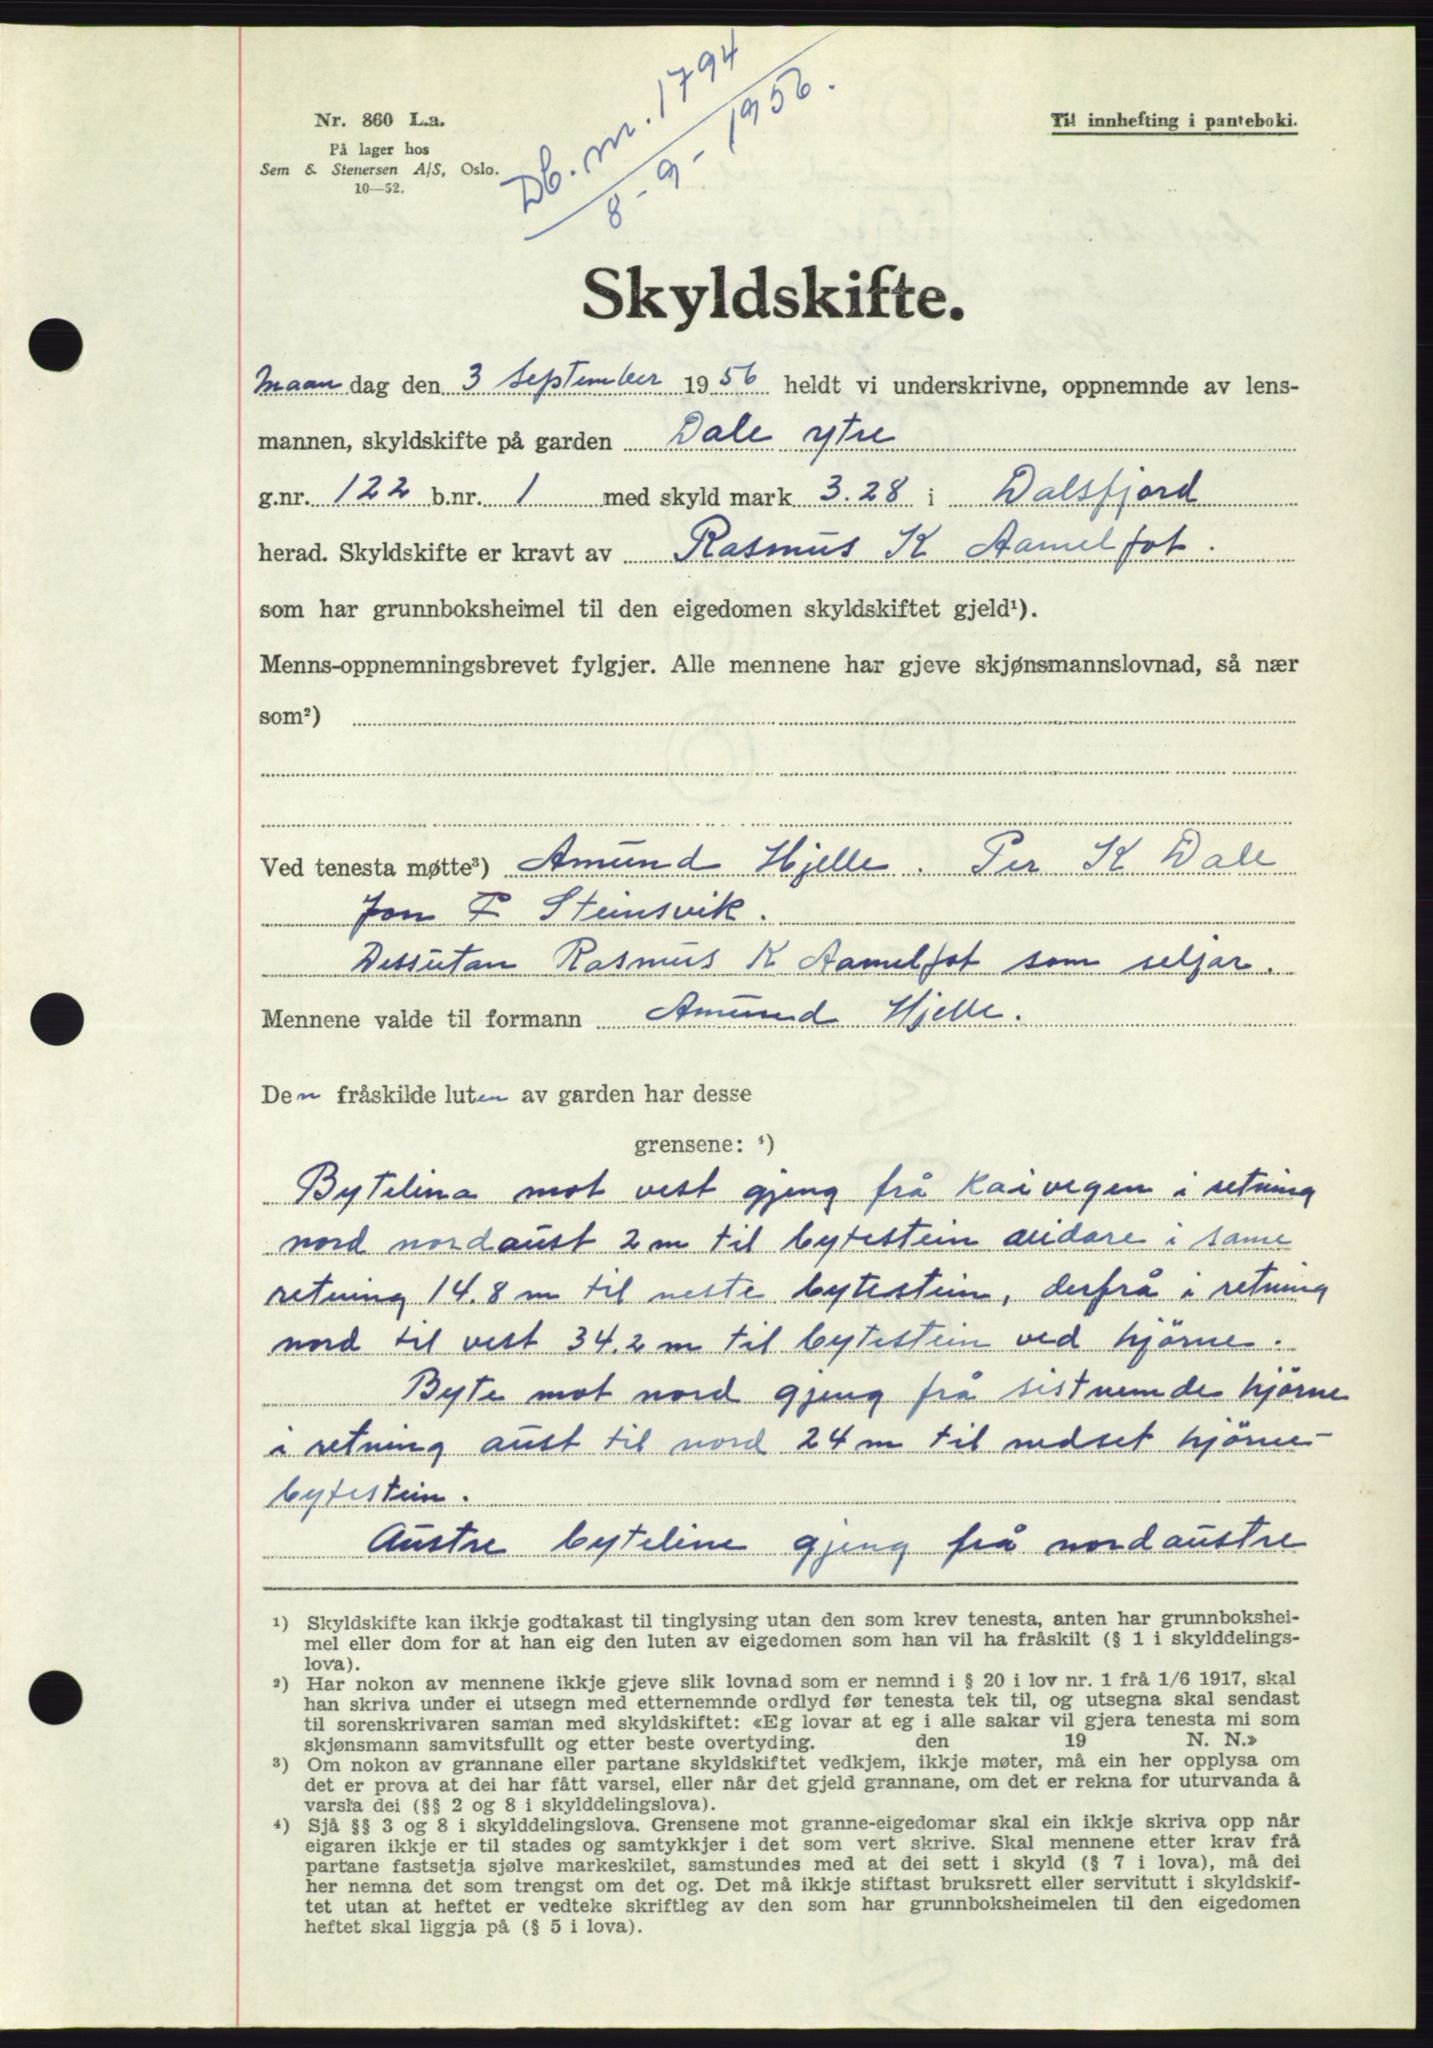 Nr. 860 L.a.
På lager hos
Sem & Stenersen A/S, Oslo.
10—52.
Db. nr. 1794
8-9-1956.
Til innhefting i panteboki.
Skyldskifte.
Maandag den 3 september 1956 heldt vi underskrivne, oppnemnde av lens-
mannen, skyldskifte på garden Dale ytre
g.nr. 122 b.nr. 1 med skyld mark 3.28 i Dalsfjord
herad. Skyldskifte er kravt av Rasmus K Aamelfot.
som har grunnboksheimel til den eigedomen skyldskiftet gjeld¹).
Menns-oppnemningsbrevet fylgjer. Alle mennene har gjeve skjønsmannslovnad, så nær
som²)
Ved tenesta møtte³) Amund Hjelle. Per K Dale
Jon P Steinsvik.
Dessutan Rasmus K Aamelfot som seljar.
Mennene valde til formann Amund Hjelle.
Den fråskilde luten av garden har desse
grensene: ⁴)
Bytelina mot vest gjeng frå Kaivegen i retning
nord nordaust 2 m til bytestein vidare i same
retning 14.8 m til neste bytestein, derfrå i retning
nord til vest 34.2 m til bytestein ved hjörne.
Byte mot nord gjeng frå sistnemde hjörne
i retning aust til nord 24 m til nedset hjörne-
bytestein.
Austre byteline gjeng frå nordaustre
¹) Skyldskifte kan ikkje godtakast til tinglysing utan den som krev tenesta, anten har grunnbokshei-
mel eller dom for at han eig den luten av eigedomen som han vil ha fråskilt (§ 1 i skylddelings-
lova).
²) Har nokon av mennene ikkje gjeve slik lovnad som er nemnd i § 20 i lov nr. 1 frå 1/6 1917, skal
han skriva under ei utsegn med etternemnde ordlyd før tenesta tek til, og utsegna skal sendast
til sorenskrivaren saman med skyldskiftet: «Eg lovar at eg i alle sakar vil gjera tenesta mi som
skjønsmann samvitsfullt og etter beste overtyding. den 19 N. N.»
³) Om nokon av grannane eller partane skyldskiftet vedkjem, ikkje møter, må ein her opplysa om
det er prova at dei har fått varsel, eller når det gjeld grannane, om det er rekna for uturvanda å
varsla dei (§§ 2 og 8 i skylddelingslova).
⁴) Sjå §§ 3 og 8 i skylddelingslova. Grensene mot granne-eigedomar skal ein ikkje skriva opp når
eigaren ikkje er til stades og samtykkjer i det som vert skrive. Skal mennene etter krav frå
partane fastsetja sjølve markeskilet, samstundes med at dei sett i skyld (§ 7 i lova), må dei
her nemna det som trengst om det og. Det må ikkje stiftast bruksrett eller servitutt i skyldskif-
tet utan at heftet er vedteke skriftleg av den som har grunnboksheimelen til den eigedomen
heftet skal liggja på (§ 5 i lova).